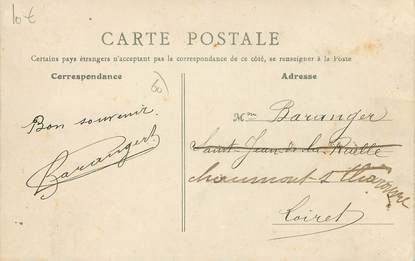 10 €
CARTE POSTALE
Certains pays étrangers n'acceptant pas la correspondance de ce côté, se renseigner à la Poste
Correspondance
Adresse
Bon souvenir.
Baranger
Mme Baranger
Saint Jean de la Ruelle
Chaumont s Tharonne
Loiret